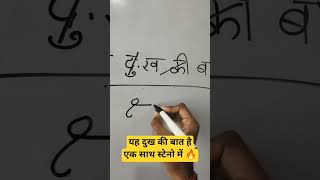 दुःख की ब
यह दुख की बात है
एक साथ स्टेनो में 🔥